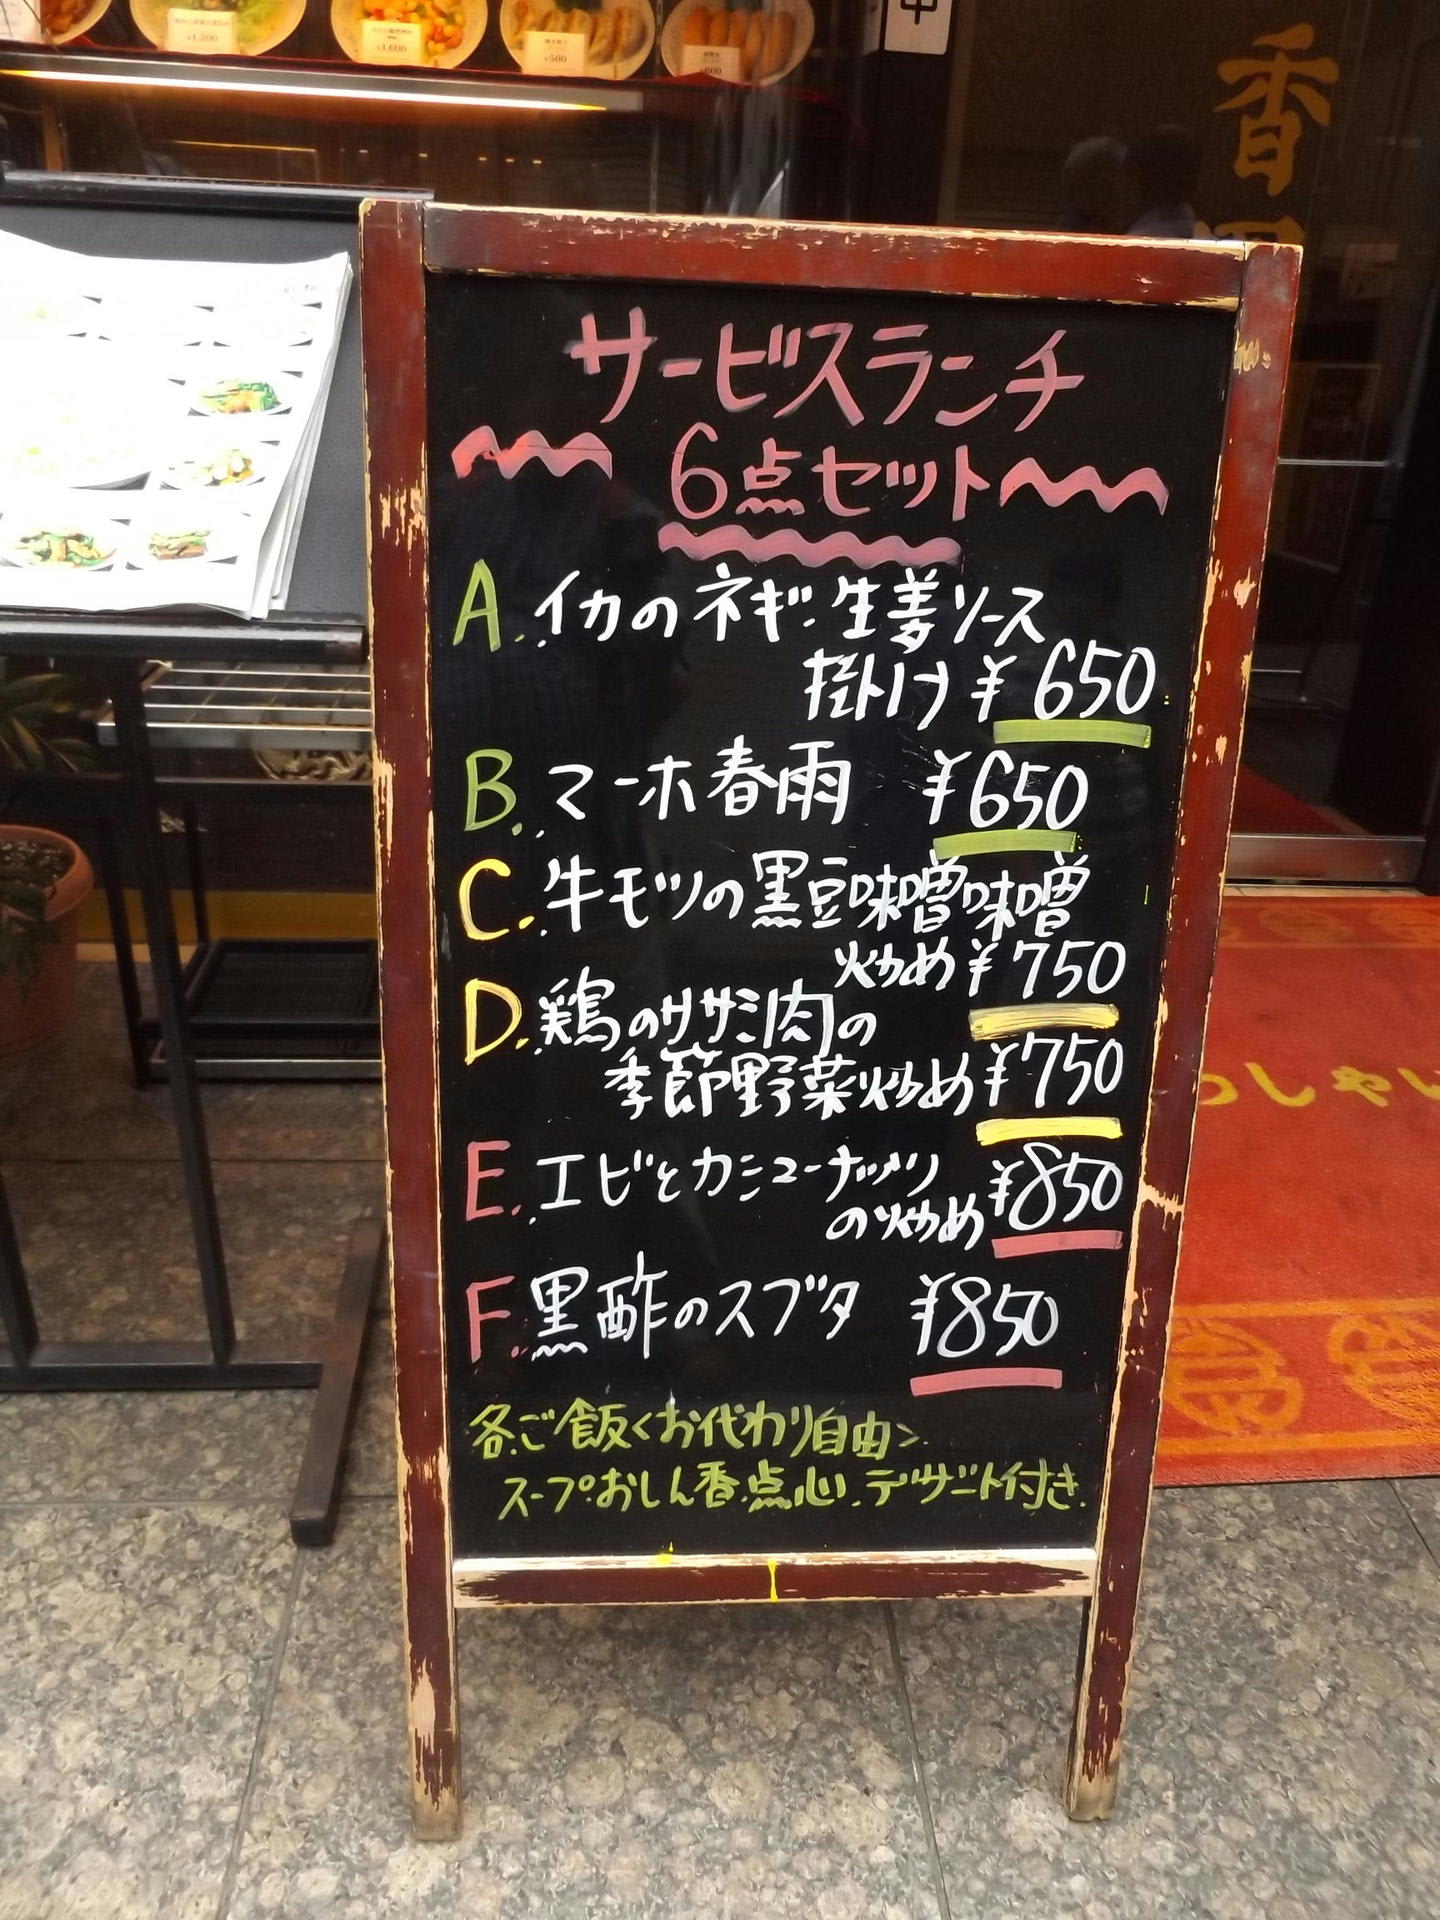 ¥1,600
¥500
¥600
香
サービスランチ
6点セット
A. イカのネギ・生姜ソース
掛け ¥650
B. マーホ春雨 ¥650
C. 牛モツの黒豆味噌味噌
炒め ¥750
D. 鶏のササミ肉の
季節野菜炒め ¥750
E. エビとカシューナッツ
の炒め ¥850
F. 黒酢のスブタ ¥850
各ご飯<お代わり自由>
スープ・おしん香・点心・デザート付き